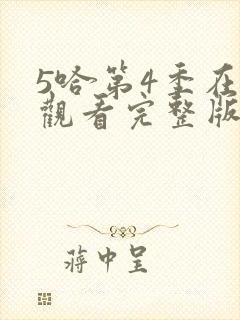 5哈第4季在
觀看完整版
蔣中呈